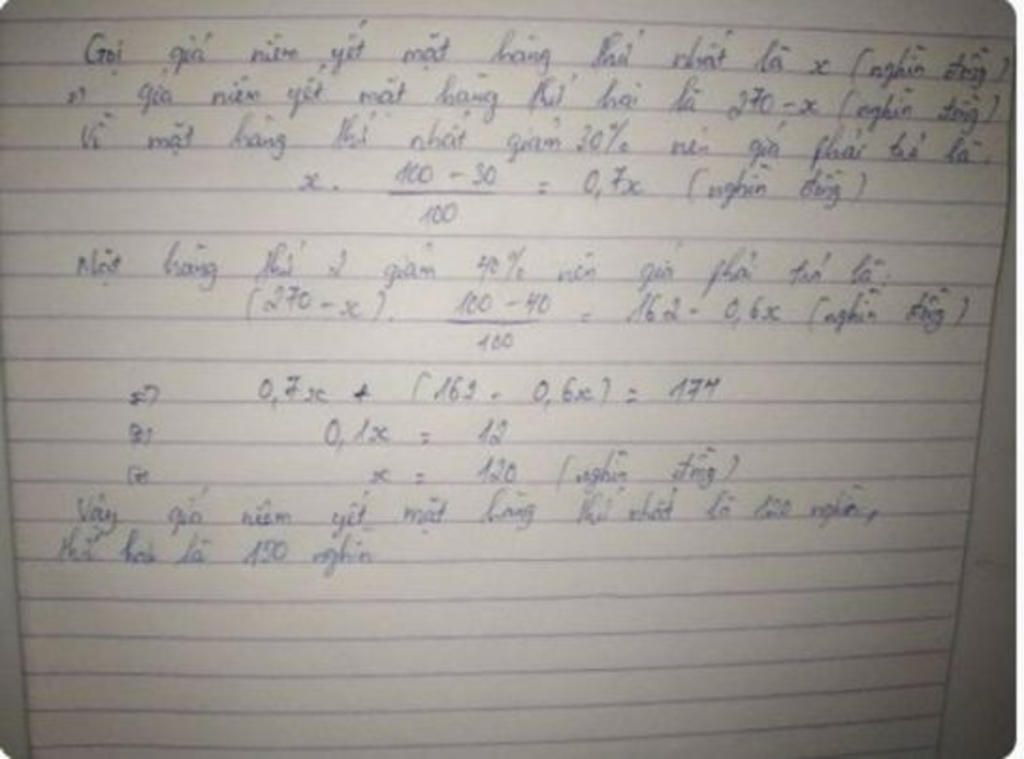 Gọi giá niêm yết mặt hàng thứ nhất là x (nghìn đồng)
=> giá niêm yết mặt hàng thứ hai là 270 - x (nghìn đồng)
Vì mặt hàng thứ nhất giảm 30% nên giá phải trả là:
x . (100 - 30)/100 = 0,7x (nghìn đồng)
Mặt hàng thứ 2 giảm 40% nên giá phải trả là:
(270 - x) . (100 - 40)/100 = 162 - 0,6x (nghìn đồng)
=> 0,7x + (162 - 0,6x) = 174
<=> 0,1x = 12
<=> x = 120 (nghìn đồng)
Vậy giá niêm yết mặt hàng thứ nhất là 120 nghìn,
thứ hai là 150 nghìn